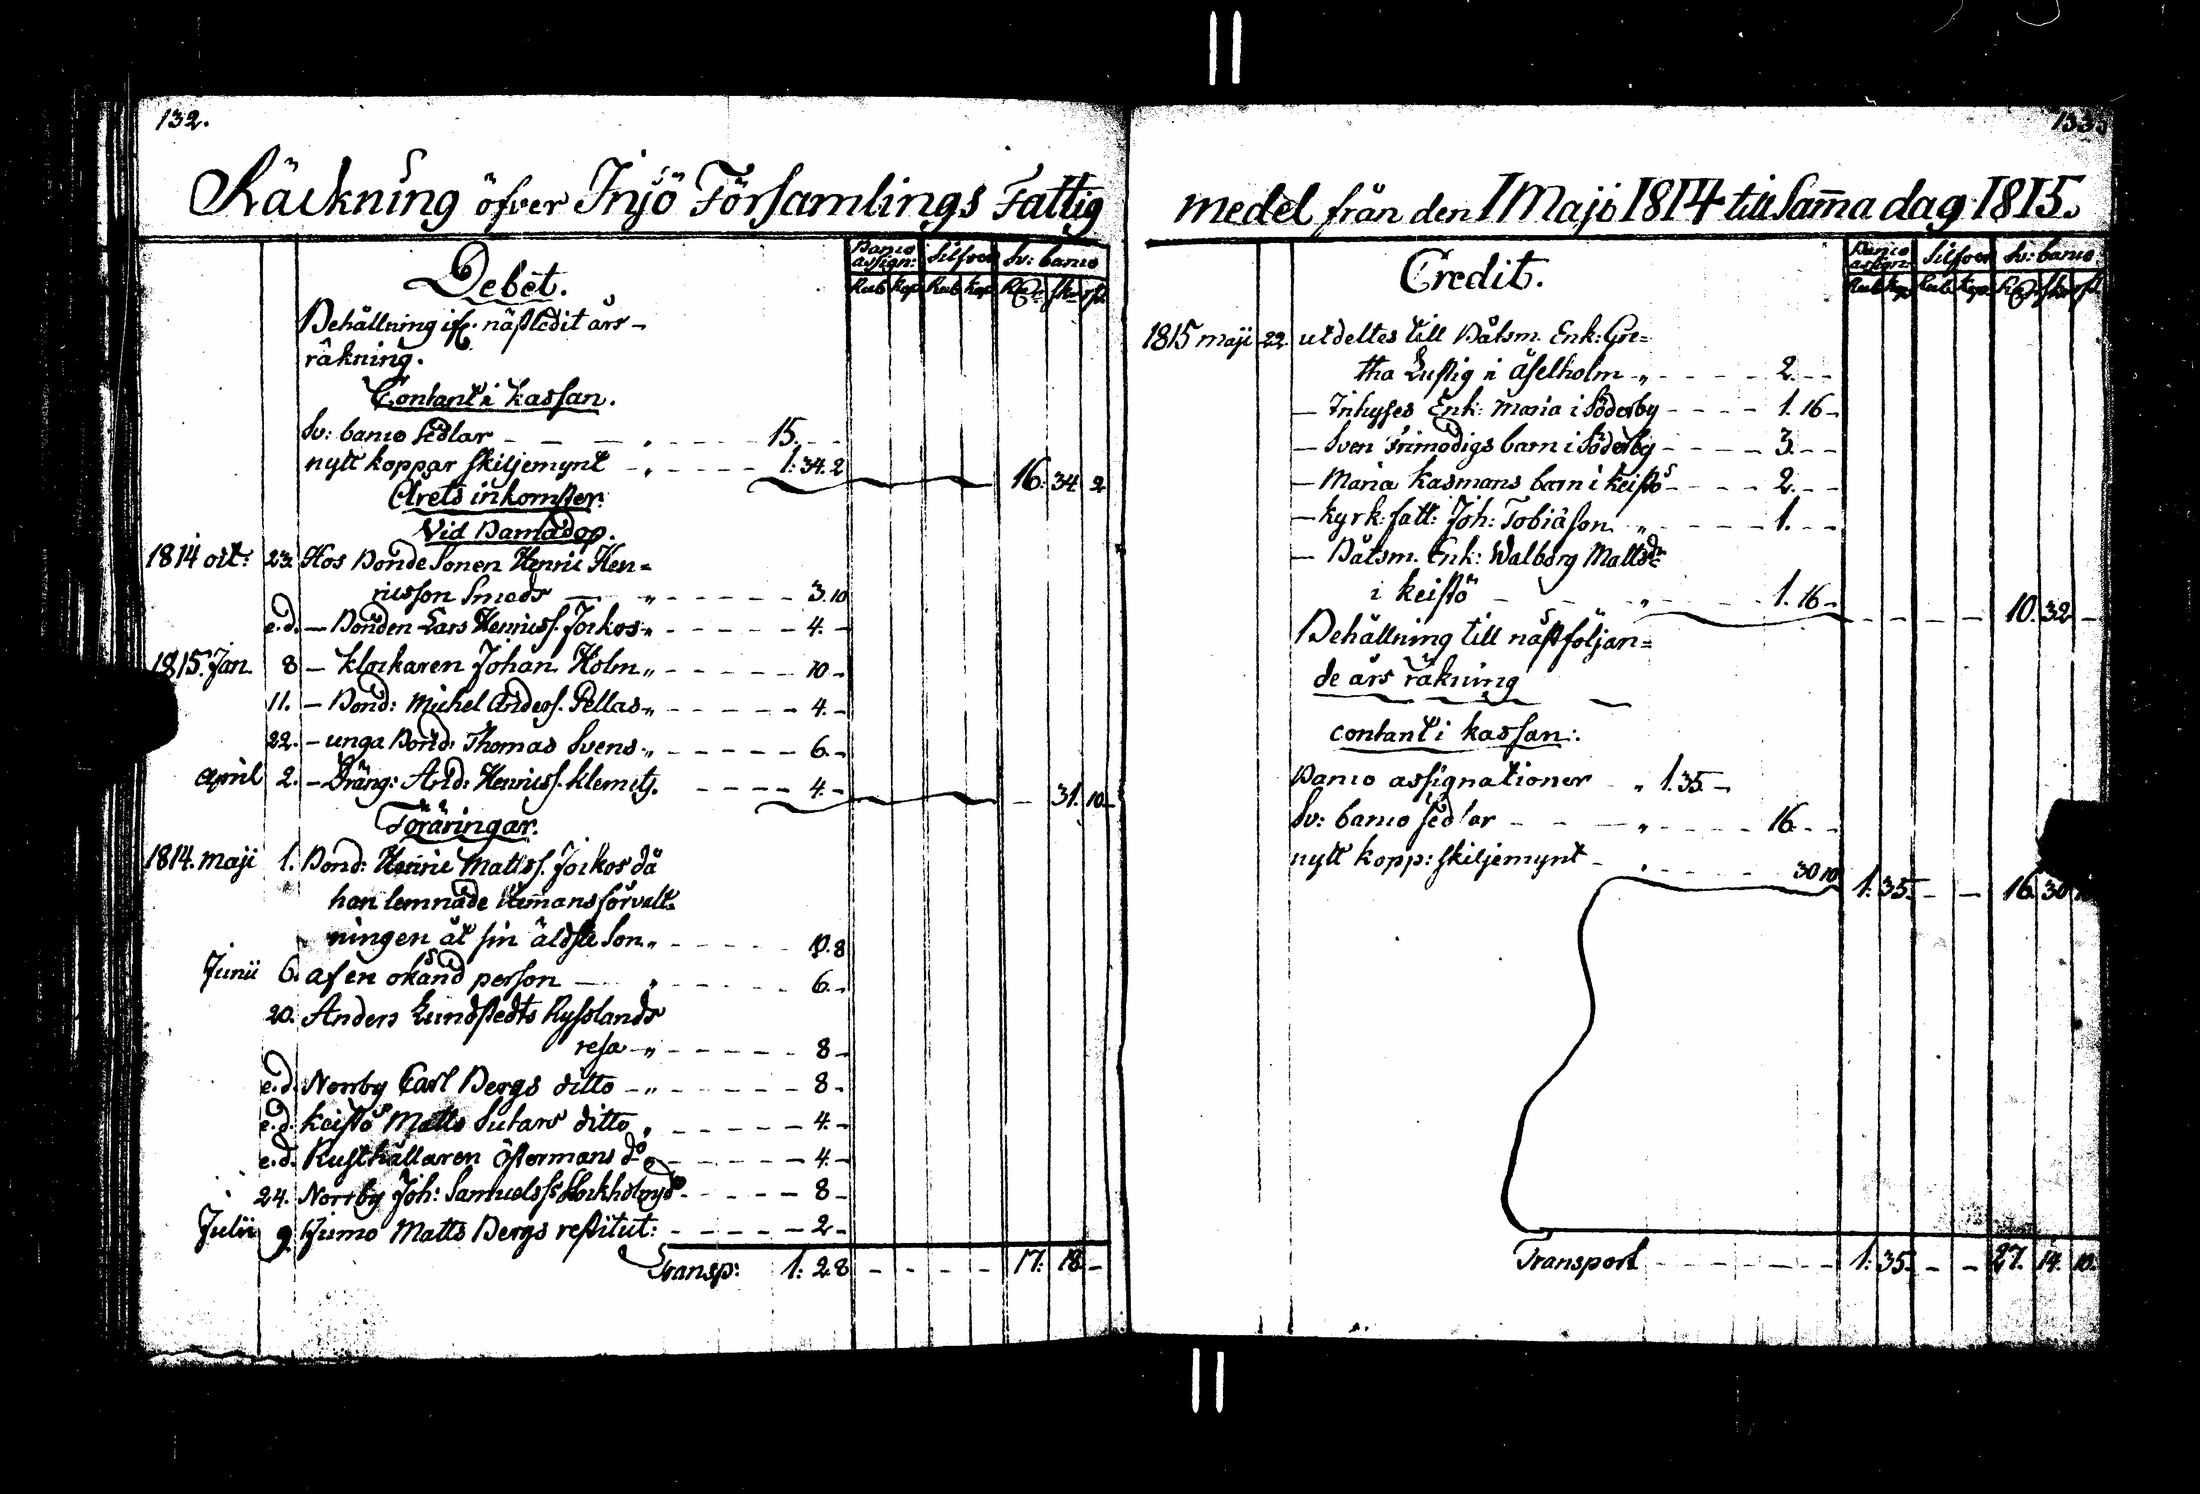 132.
Räckning öfver Injö Församlings Fattig
Banco assign: Silfver Sv: banco
Rub kop Rub kop Rd sk rst
Debet.
Behållning ifr. näst ledit års-
räkning.
Contant i kassan.
Sv: banco sedlar - - - 15. - -
nytt koppar skiljemynt - - - 1: 34. 2 16. 34 2
Årets inkomster.
Vid Barnadop.
1814 oct: 23. Hos Bonde Sonen Henric Hen=
ricsson Smeds - - - 3. 10
e.d. - Bonden Lars Henricss. Jockos - - - 4. -
1815. Jan 8 - klockaren Johan Holm - - - 10 -
11. - Bond: Michel Anders. Pellas - - - 4. -
22. - unga Bond: Thomas Svens - - - 6. -
april 2. - Dräng: And: Henricss. klemetz. - - - 4. - - 31. 10.
Föräringar.
1814. maji 1. Bond: Henric Mattss. Jockos då
han lemnade Hemansförvalt-
ningen åt sin äldste Son - - - 10. 8
Junii 6. af en okänd person - - - 6. -
20. Anders Lundstedts Rysslands
resa - - - 8 -
e.d. Norrby Carl Bergs ditto - - - 8 -
e.d. keistö Matts Sutars ditto - - - 4. -
e.d. Rusthållaren östermans do - - - 4. -
24. Norrby Joh: Samuelss Stockholms do - - - 8 -
Julii 9 Hjumo Matts Bergs restitut: - - - 2 -
Transp: 1: 28 - - - - 17: 18 -
133
medel från den 1 Maji 1814 till Samma dag 1815.
Banco assign: Silfver Sv: banco
Rub kop Rub kop Rd sk rst
Credit.
1815 maji 22. utdeltes till Båtsm. Enk: Gre=
tha Lustig i äselholm - - - 2. - -
- Inhyses Enk: Maria i Söderby - - - 1. 16 -
- Sven Frimodigs barn i Söderby - - - 3. - -
- Maria kasmans barn i keistö - - - 2. - -
- kyrk: fatt: Joh: Tobiäson - - - 1. - -
- Båtsm. Enk: Walborg Mattsdr
i keistö - - - 1. 16 - 10. 32 -
Behållning till nästföljan=
de års räkning
contant i kassan:.
Banco assignationer - 1. 35. -
Sv: banco sedlar - - - 16 - -
nytt kopp: skiljemynt - - - 30 10 1. 35. - - 16. 30
Transport - - - 1. 35. - - 27. 14. 10.